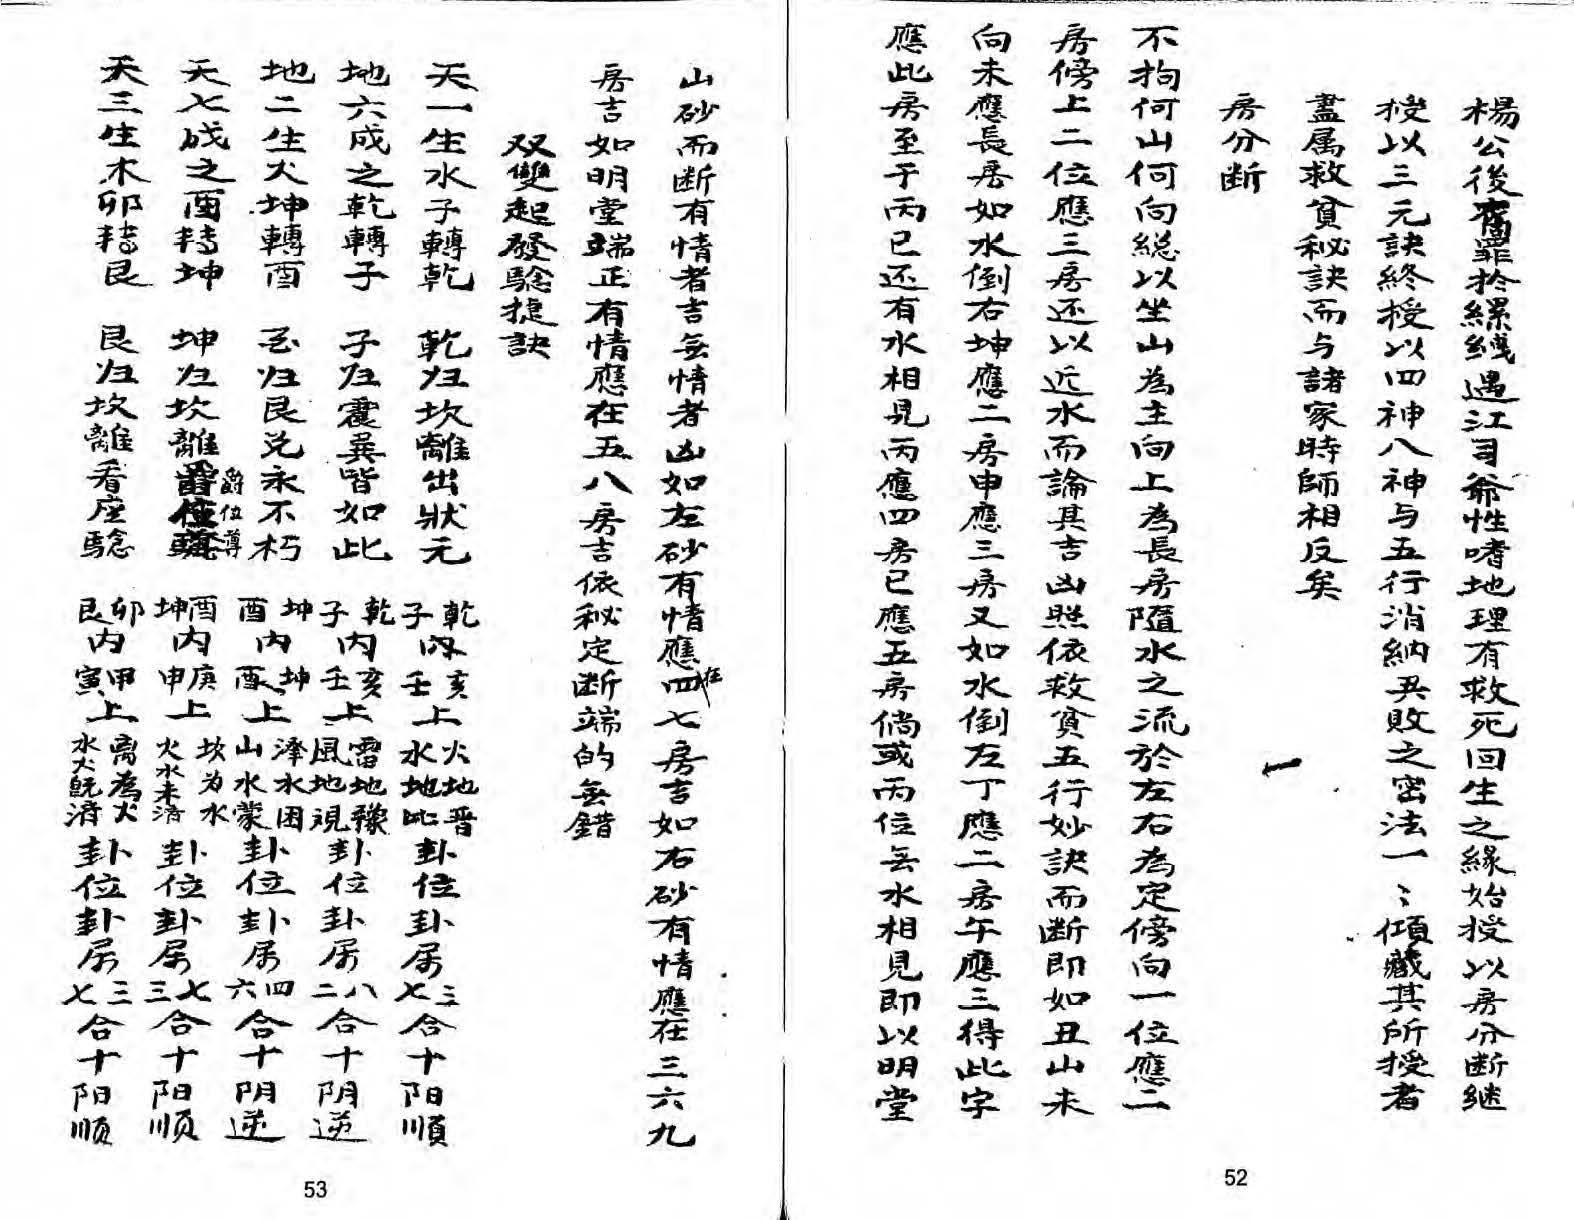 楊公後罹罪於縲絏遇江司爺性嗜地理有救死回生之緣始授以房分断継
授以三元訣終授以四神八神与五行消納興敗之密法一〻傾藏其所授者
盡属救貧秘訣而与諸家時師相反矣
房分断
不拘何山何向総以坐山為主向上為長房隨水之流於左右為定傍向一位應二
房傍上二位應三房还以近水而論其吉凶照依救貧五行妙訣而断即如丑山未
向未應長房如水倒右坤應二房申應三房又如水倒左丁應二房午應三得此字
應此房至于丙巳还有水相見丙應四房巳應五房倘或丙位無水相見即以明堂
52
山砂而断有情者吉無情者凶如左砂有情應在四七房吉如右砂有情應在三六九
房吉如明堂端正有情應在五八房吉依秘定断端的無錯
双雙起發驗捷訣
天一生水子轉乾 乾归坎離出狀元 乾子内亥壬上火地晋水地比卦位卦居三七合十阳順
地六成之乾轉子 子归震巽皆如此 乾子内亥壬上雷地豫風地視卦位卦居八二合十阴逆
地二生火坤轉酉 酉归艮兑永不朽 坤酉内坤酉上澤水困山水蒙卦位卦居四六合十阴逆
天七成之酉轉坤 坤归坎離爵位尊 酉坤内庚申上坎为水火水未済卦位卦居七三合十阳順
天三生木卯轉艮 艮归坎離看座驗 卯艮内甲寅上离為火水火既済卦位卦居三七合十阳順
53